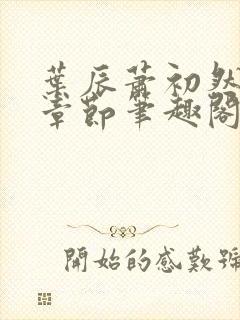 葉辰蕭初然
章節筆趣閣
開始的感歎號